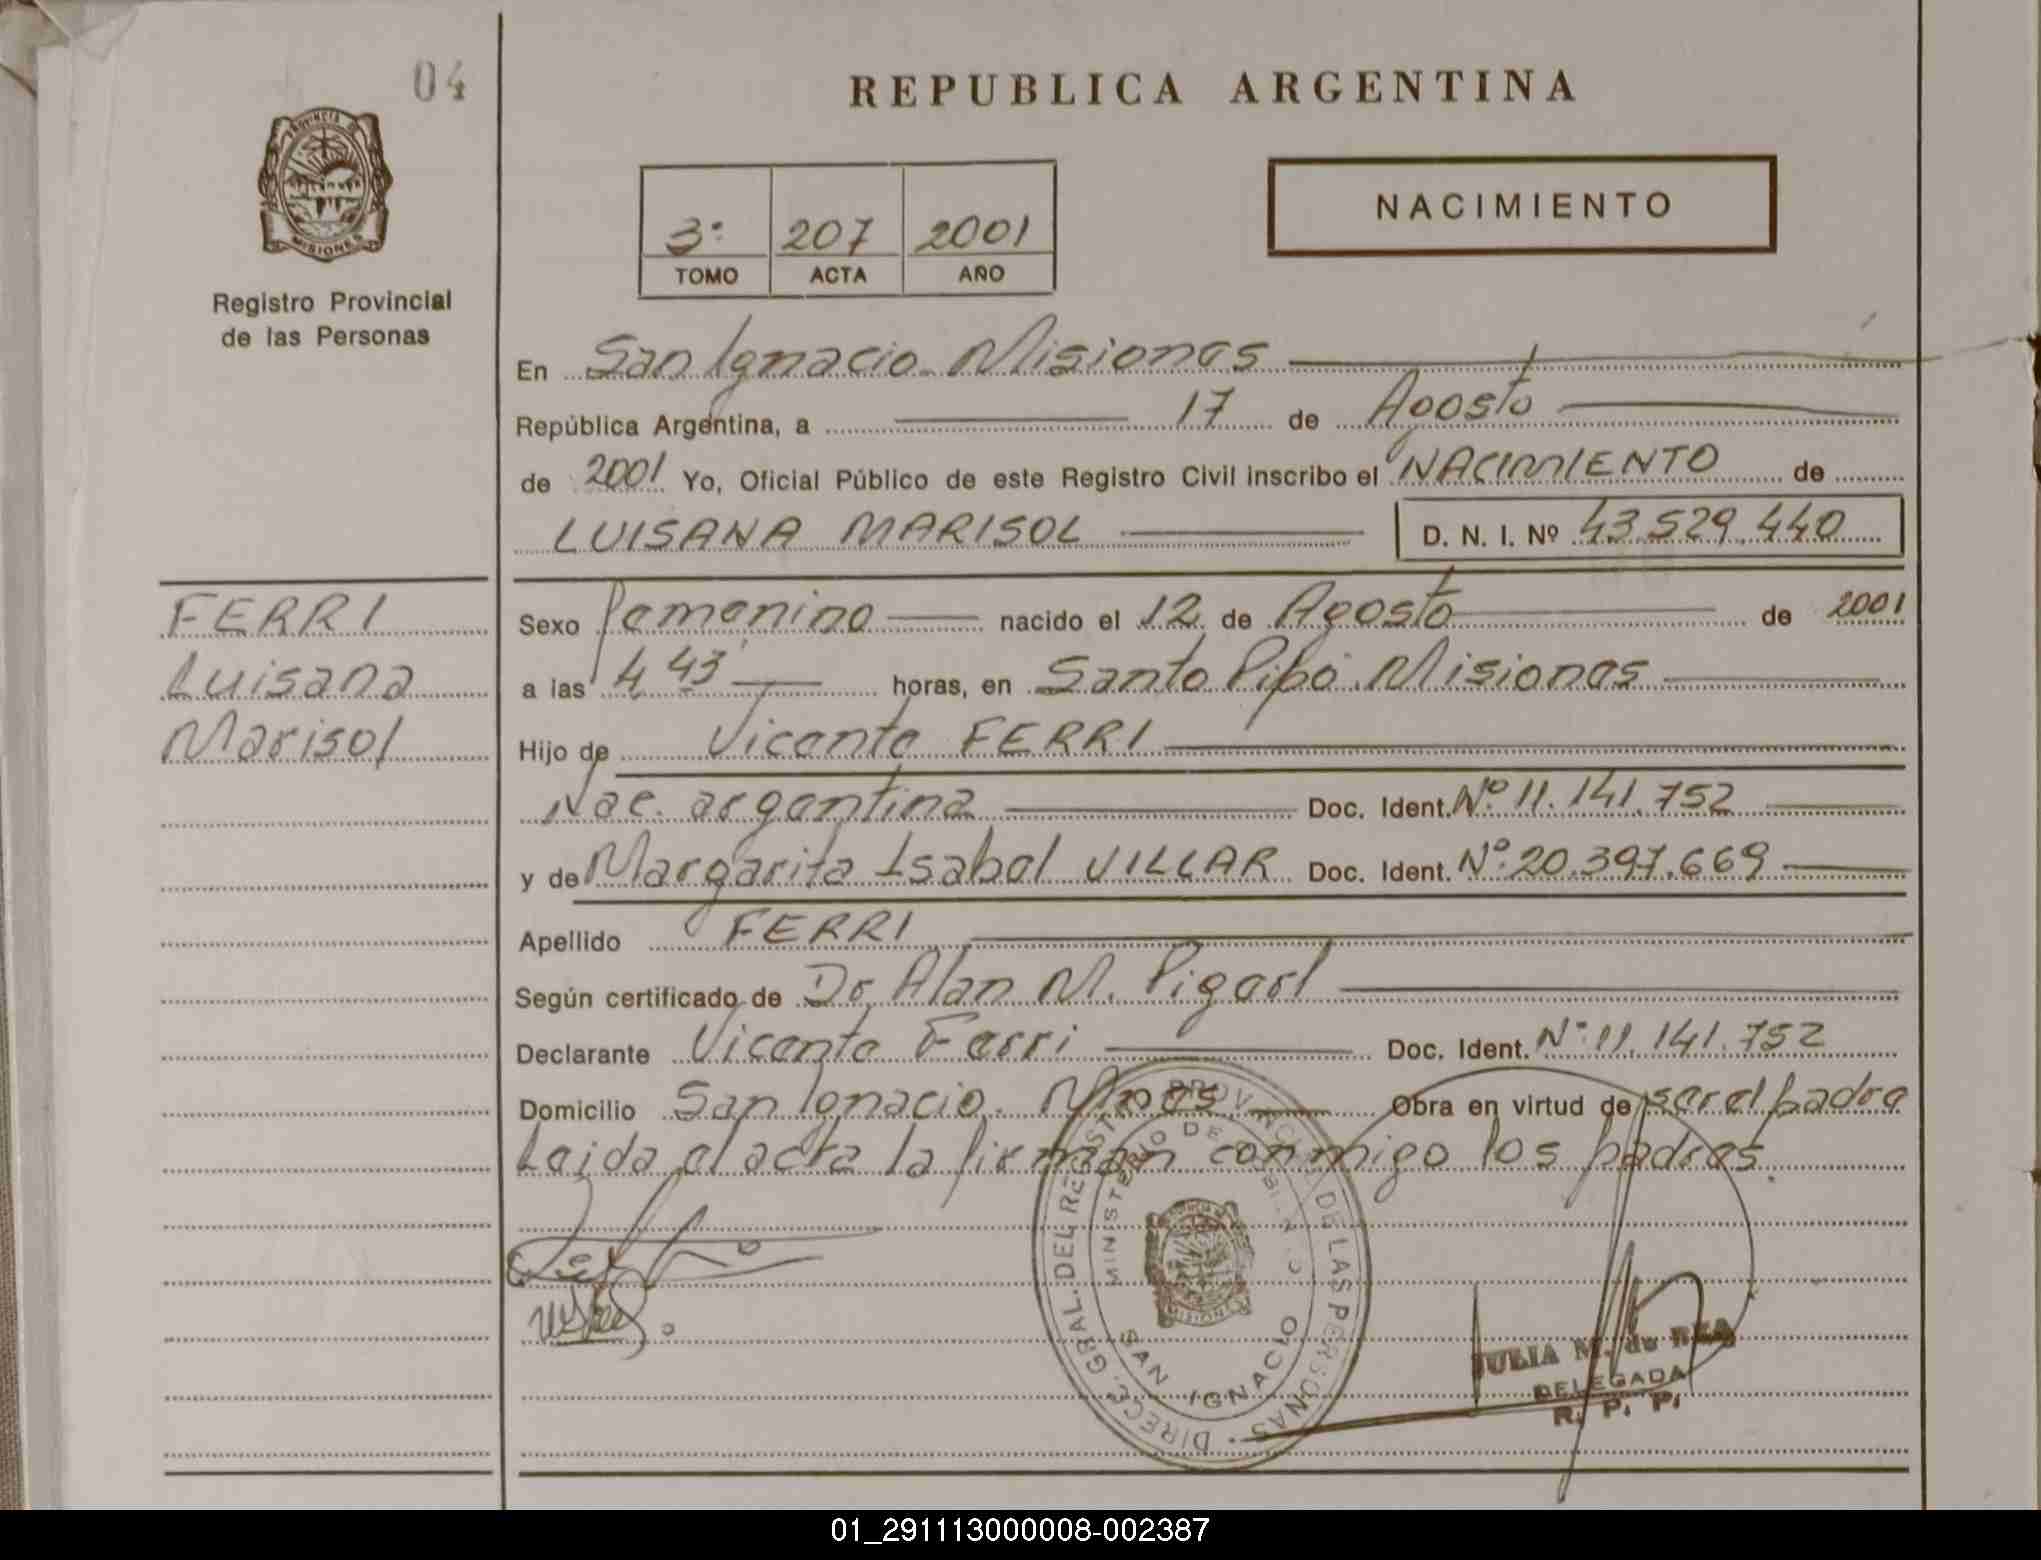 04
PROVINCIA DE
MISIONES
Registro Provincial
de las Personas
REPUBLICA ARGENTINA
3º 207 2001
TOMO ACTA AÑO
NACIMIENTO
En San Ignacio Misiones
República Argentina, a 17 de Agosto
de 2001 Yo, Oficial Público de este Registro Civil inscribo el NACIMIENTO de
LUISANA MARISOL D. N. I. Nº 43.529.440
FERRI
Luisana
Marisol
Sexo femenino nacido el 12 de Agosto de 2001
a las 4 43' horas, en Santo Pipó Misiones
Hijo de Vicente FERRI
Nac. argentina Doc. Ident. Nº 11.141.752
y de Margarita Isabel VILLAR Doc. Ident. Nº 20.397.669
Apellido FERRI
Según certificado de Dr. Alan M.
Declarante Vicente Ferri Doc. Ident. Nº 11.141.752
Domicilio San Ignacio. Mnes Obra en virtud de ser el padre
Leida el acta la firman conmigo los padres.
DIRECC. GRAL. DEL REGISTRO PROVINCIAL DE LAS PERSONAS
MINISTERIO DE
SAN IGNACIO
MISIONES
JULIA M. de REA
DELEGADA
R. P. P.
01_291113000008-002387